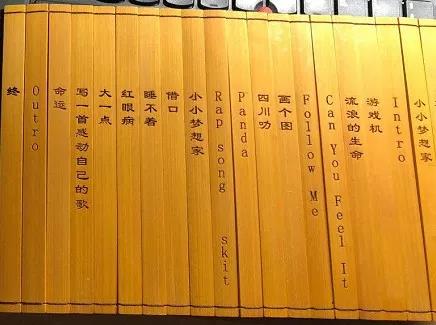 小小梦想家
Intro
游戏机
流浪的生命
Can You Feel It
Follow Me
画个图
四川叻
Panda
Rap song skit
小小梦想家
借口
睡不着
红眼病
大一点
写一首感动自己的歌
命运
Outro
终